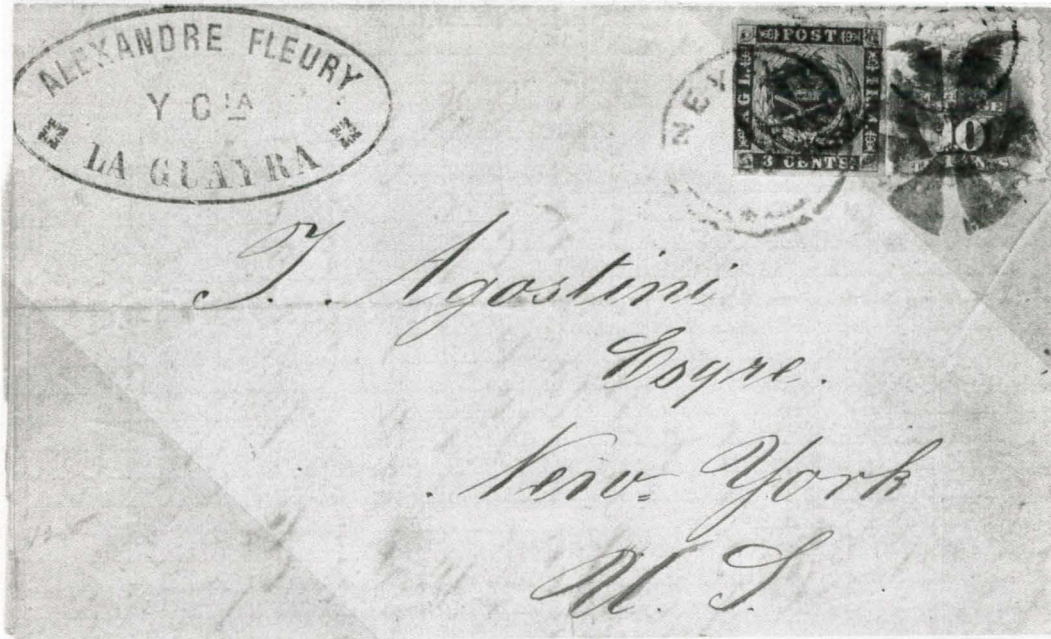 ALEXANDRE FLEURY
Y CIA
LA GUAYRA
POST
3 CENTS.
10
NEW
J. Agostini
Esqre.
New. York
U. S.